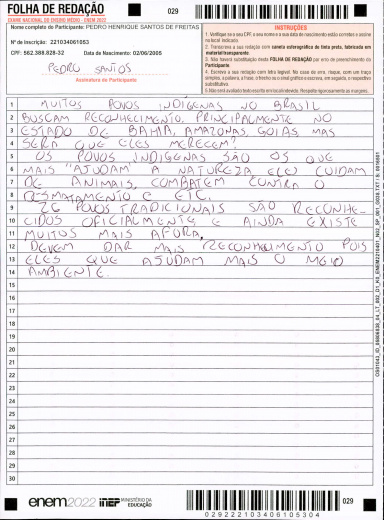 FOLHA DE REDAÇÃO
EXAME NACIONAL DO ENSINO MÉDIO - ENEM 2022
029
Nome completo do Participante: PEDRO HENRIQUE SANTOS DE FREITAS
Nº de Inscrição: 221034061053
CPF: 562.388.828-32 Data de Nascimento: 02/06/2005
PEDRO SANTOS
Assinatura do Participante
INSTRUÇÕES
1. Verifique se o seu CPF, o seu nome e a sua data de nascimento estão corretos e assine
no local indicado.
2. Transcreva a sua redação com caneta esferográfica de tinta preta, fabricada em
material transparente.
3. Não haverá substituição desta FOLHA DE REDAÇÃO por erro de preenchimento do
Participante.
4. Escreva a sua redação com letra legível. No caso de erro, risque, com um traço
simples, a palavra, a frase, o trecho ou o sinal gráfico e escreva, em seguida, o respectivo
substitutivo.
5. Não será avaliado texto escrito em local indevido. Respeite rigorosamente as margens.
1 MUITOS POVOS INDÍGENAS NO BRASIL
2 BUSCAM RECONHECIMENTO, PRINCIPALMENTE NO
3 ESTADO DE BAHIA, AMAZONAS, GOIAS, MAS
4 SERÁ QUE ELES MERECEM?
5 OS POVOS INDIGENAS SÃO OS QUE
6 MAIS "AJUDAM" A NATUREZA ELES CUIDAM
7 DE ANIMAIS, COMBATEM CONTRA O
8 DESMATAMENTO E ETC.
9 26 POVOS TRADICIONAIS SÃO RECONHE-
10 CIDOS OFICIALMENTE E AINDA EXISTE
11 MUITOS MAIS AFORA,
12 DEVEM DAR MAIS RECONHECIMENTO POIS
13 ELES QUE AJUDAM MAIS O MEIO
14 AMBIENTE.
15
16
17
18
19
20
21
22
23
24
25
26
27
28
29
30
enem2022 inep MINISTÉRIO DA
EDUCAÇÃO
029
029222103406105304